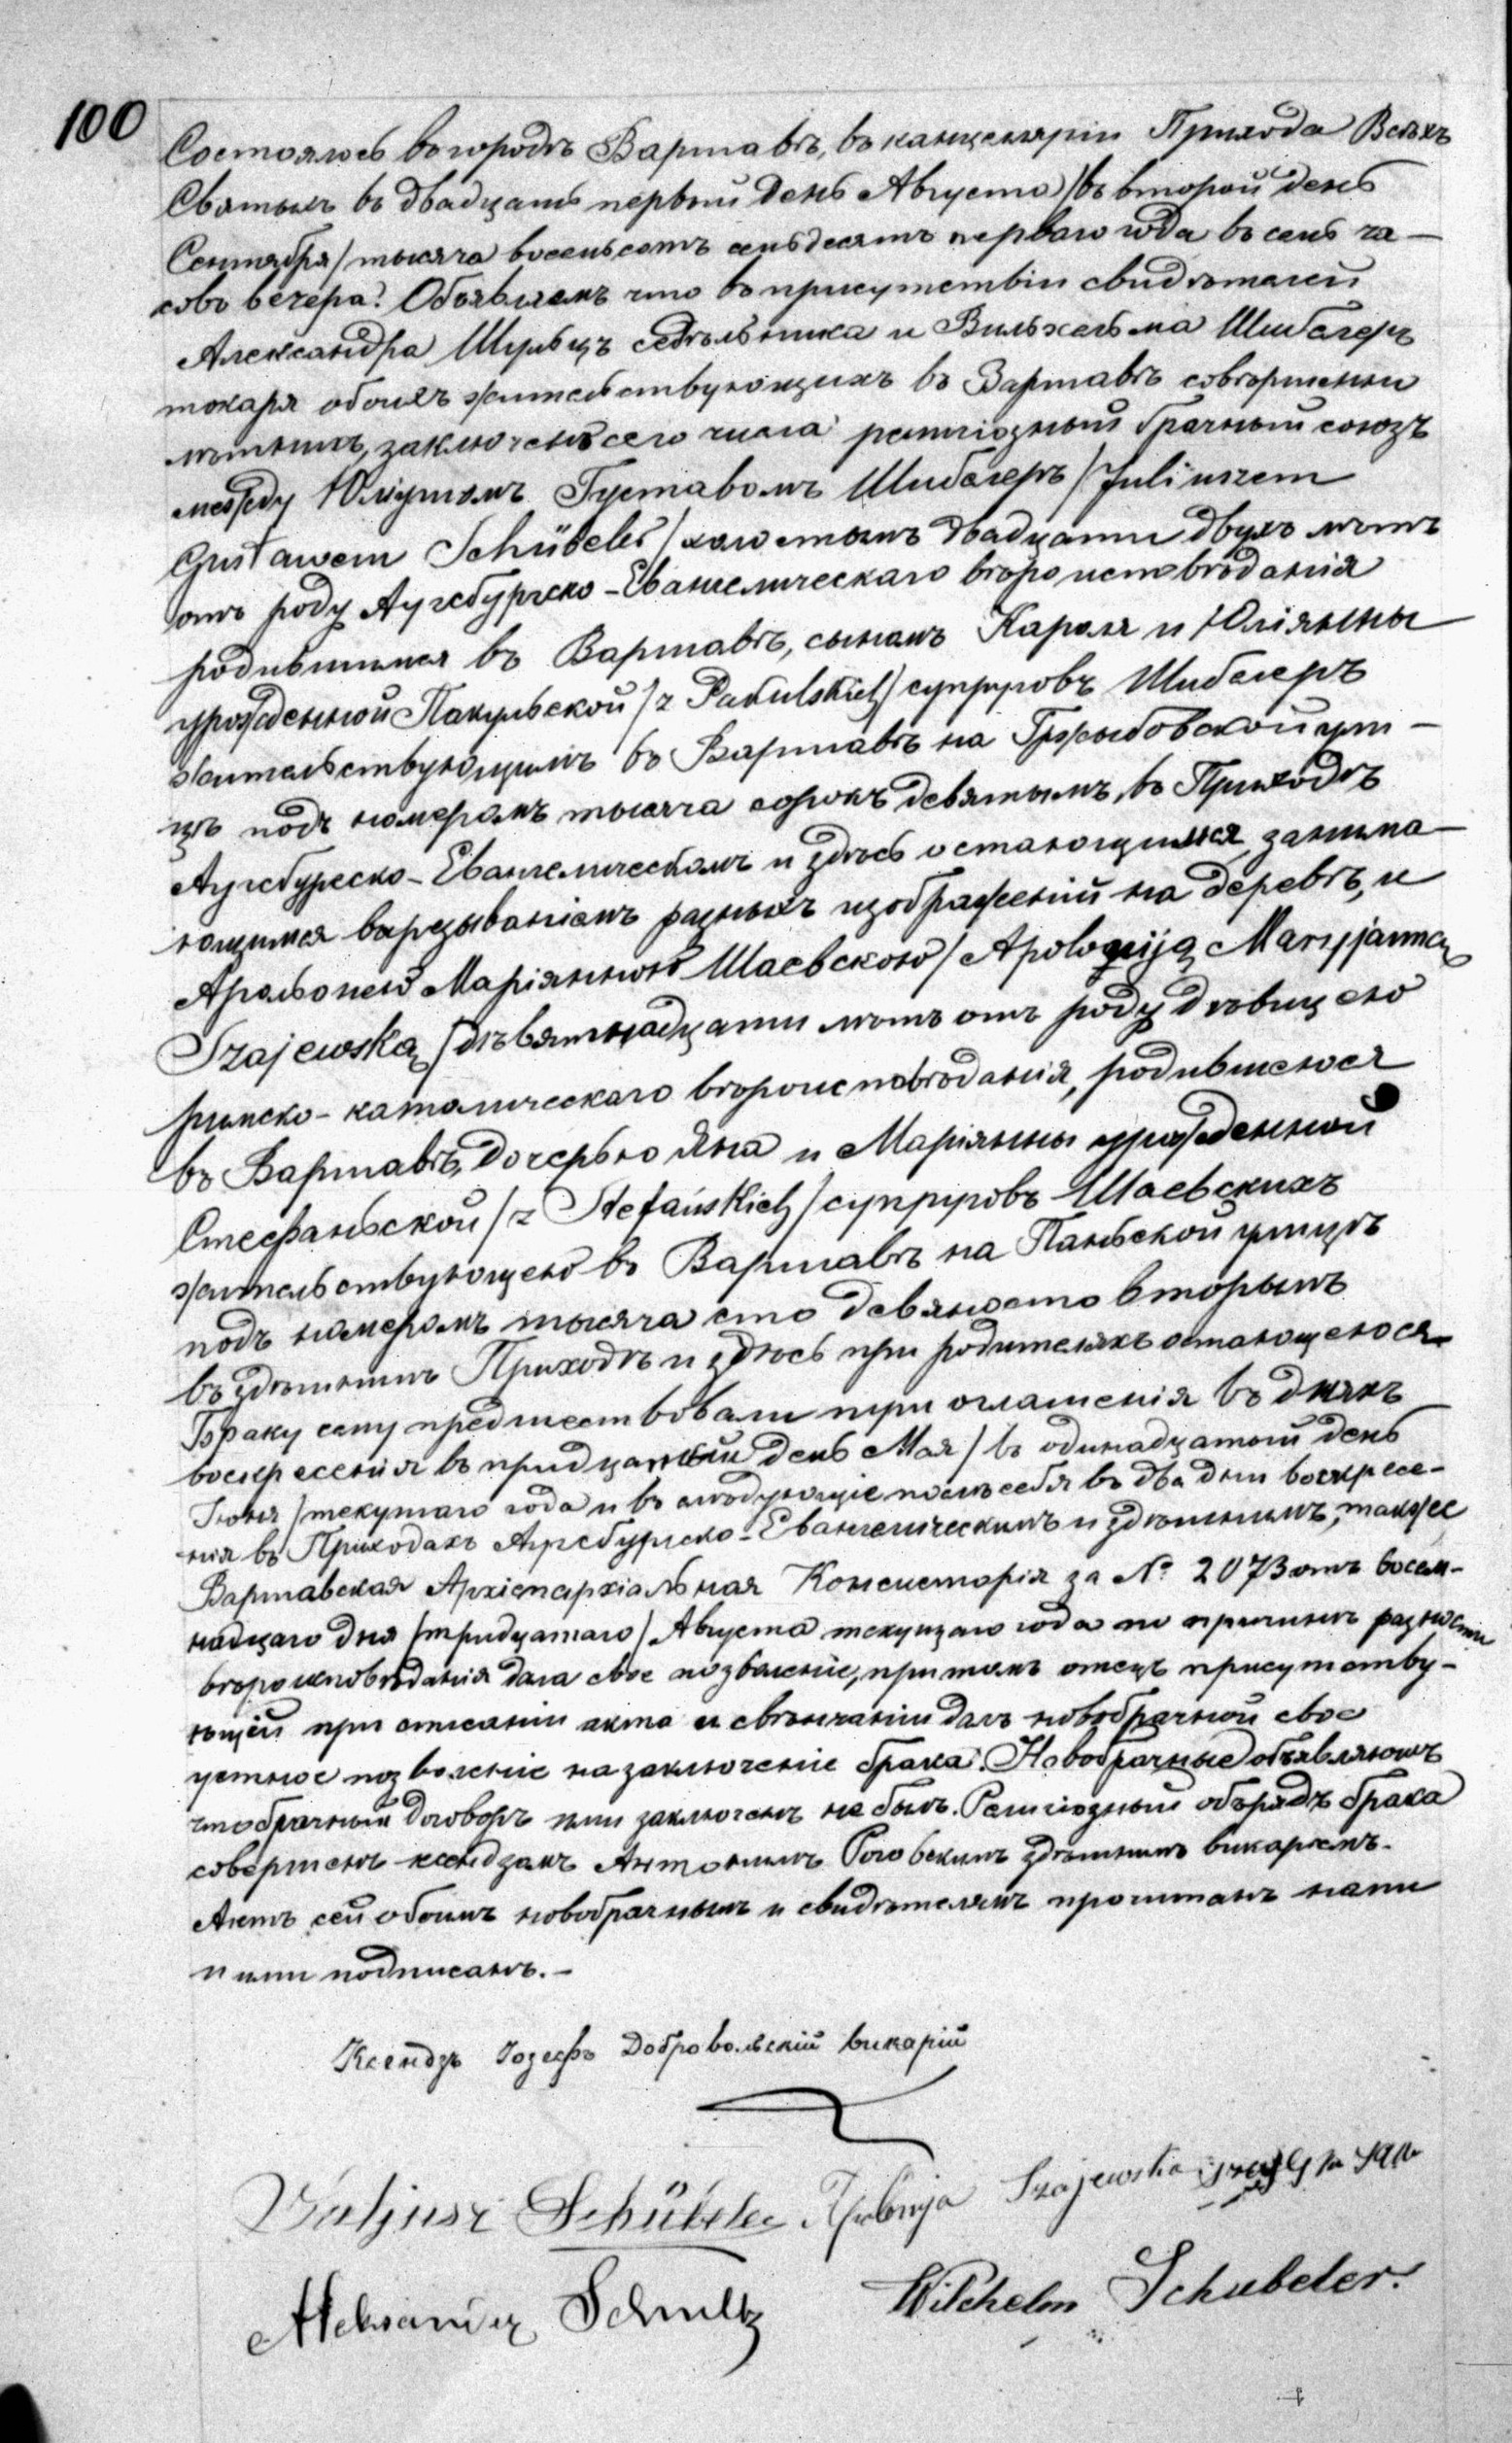 100
Состоялось въ городѣ Варшавѣ, въ канцеляріи Прихода Всѣхъ
Святыхъ въ двадцать первый день Августа /въ второй день
Сентября/ тысяча восемьсотъ семьдесятъ перваго года въ семь ча-
совъ вечера. Объявляемъ что въ присутствіи свидѣтелей
Александра Шульцъ седѣльника и Вильхельма Шибелеръ
токаря обоихъ жительствующихъ въ Варшавѣ совершенно
лѣтнихъ, заключенъ сего числа религіозный брачный союзъ
между Юліушомъ Густавомъ Шибелеръ /Juliuszem
Gustawem Schübeler/ холостымъ двадцати двухъ лѣтъ
отъ роду Аугсбургско-Евангелическаго вѣроисповѣданія
родившимся въ Варшавѣ, сыномъ Кароля и Юліянны
урожденной Пакульской /z Pakulskich/ супруговъ Шибелеръ
жительствующимъ въ Варшавѣ на Гржыбовской ули-
цѣ подъ номеромъ тысяча сорокъ девятымъ, въ Приходѣ
Аугсбургско-Евангелическомъ и здѣсь остающимся, занима-
ющимся вырѣзываніемъ разныхъ изображеній на деревѣ, и
Аполонею Маріянною Шаевскою /Apolonija Maryjanna
Szajewską/ девятнадцати лѣтъ отъ роду дѣвицею
римско-католическаго вѣроисповѣданія, родившеюся
въ Варшавѣ, дочерью Яна и Маріянны урожденной
Стефаньской /z Stefańskich/ супруговъ Шаевскихъ
жительствующею въ Варшавѣ на Паньской улицѣ
подъ номеромъ тысяча сто девяносто вторымъ
въ здѣшнимъ Приходѣ и здѣсь при родителяхъ остающеюся.
Браку сему предшествовали три оглашенія въ дняхъ
воскресенія въ тридцатый день Мая /въ одинадцатый день
Іюня/ текущаго года и въ слѣдующіе послѣ себя въ два дни воскресе-
нія въ Приходахъ Аугсбургско-Евангелическимъ и здѣшнимъ, также
Варшавская Архіепархіальная Консисторія за № 2073 отъ восем-
надцаго дня /тридцатаго/ Августа текущаго года по причинѣ разности
вѣроисповѣданія дала свое позволеніе, притомъ отецъ присутству-
ющій при списаніи акта и свѣнчаніи далъ новобрачной свое
устное позволеніе на заключеніе брака. Новобрачные объявляютъ
что брачный договоръ ими заключенъ не былъ. Религіозный обрядъ брака
совершенъ ксендзамъ Антонимъ Роговскимъ здѣшнимъ викаріемъ.
Актъ сей обоимъ новобрачнымъ и свидѣтелямъ прочитанъ нами
и ими подписанъ.-
Ксендзъ Іозефъ Добровольскій викарій
Juljusz Schübeler Apolonija Szajewska
Aleksander Schultz Wilchelm Schubeler.